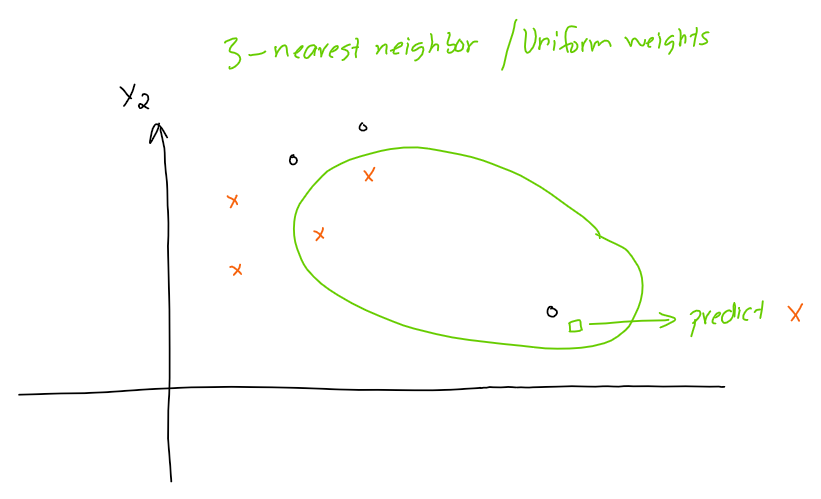 3-nearest neighbor / Uniform weights
Y2
predict X